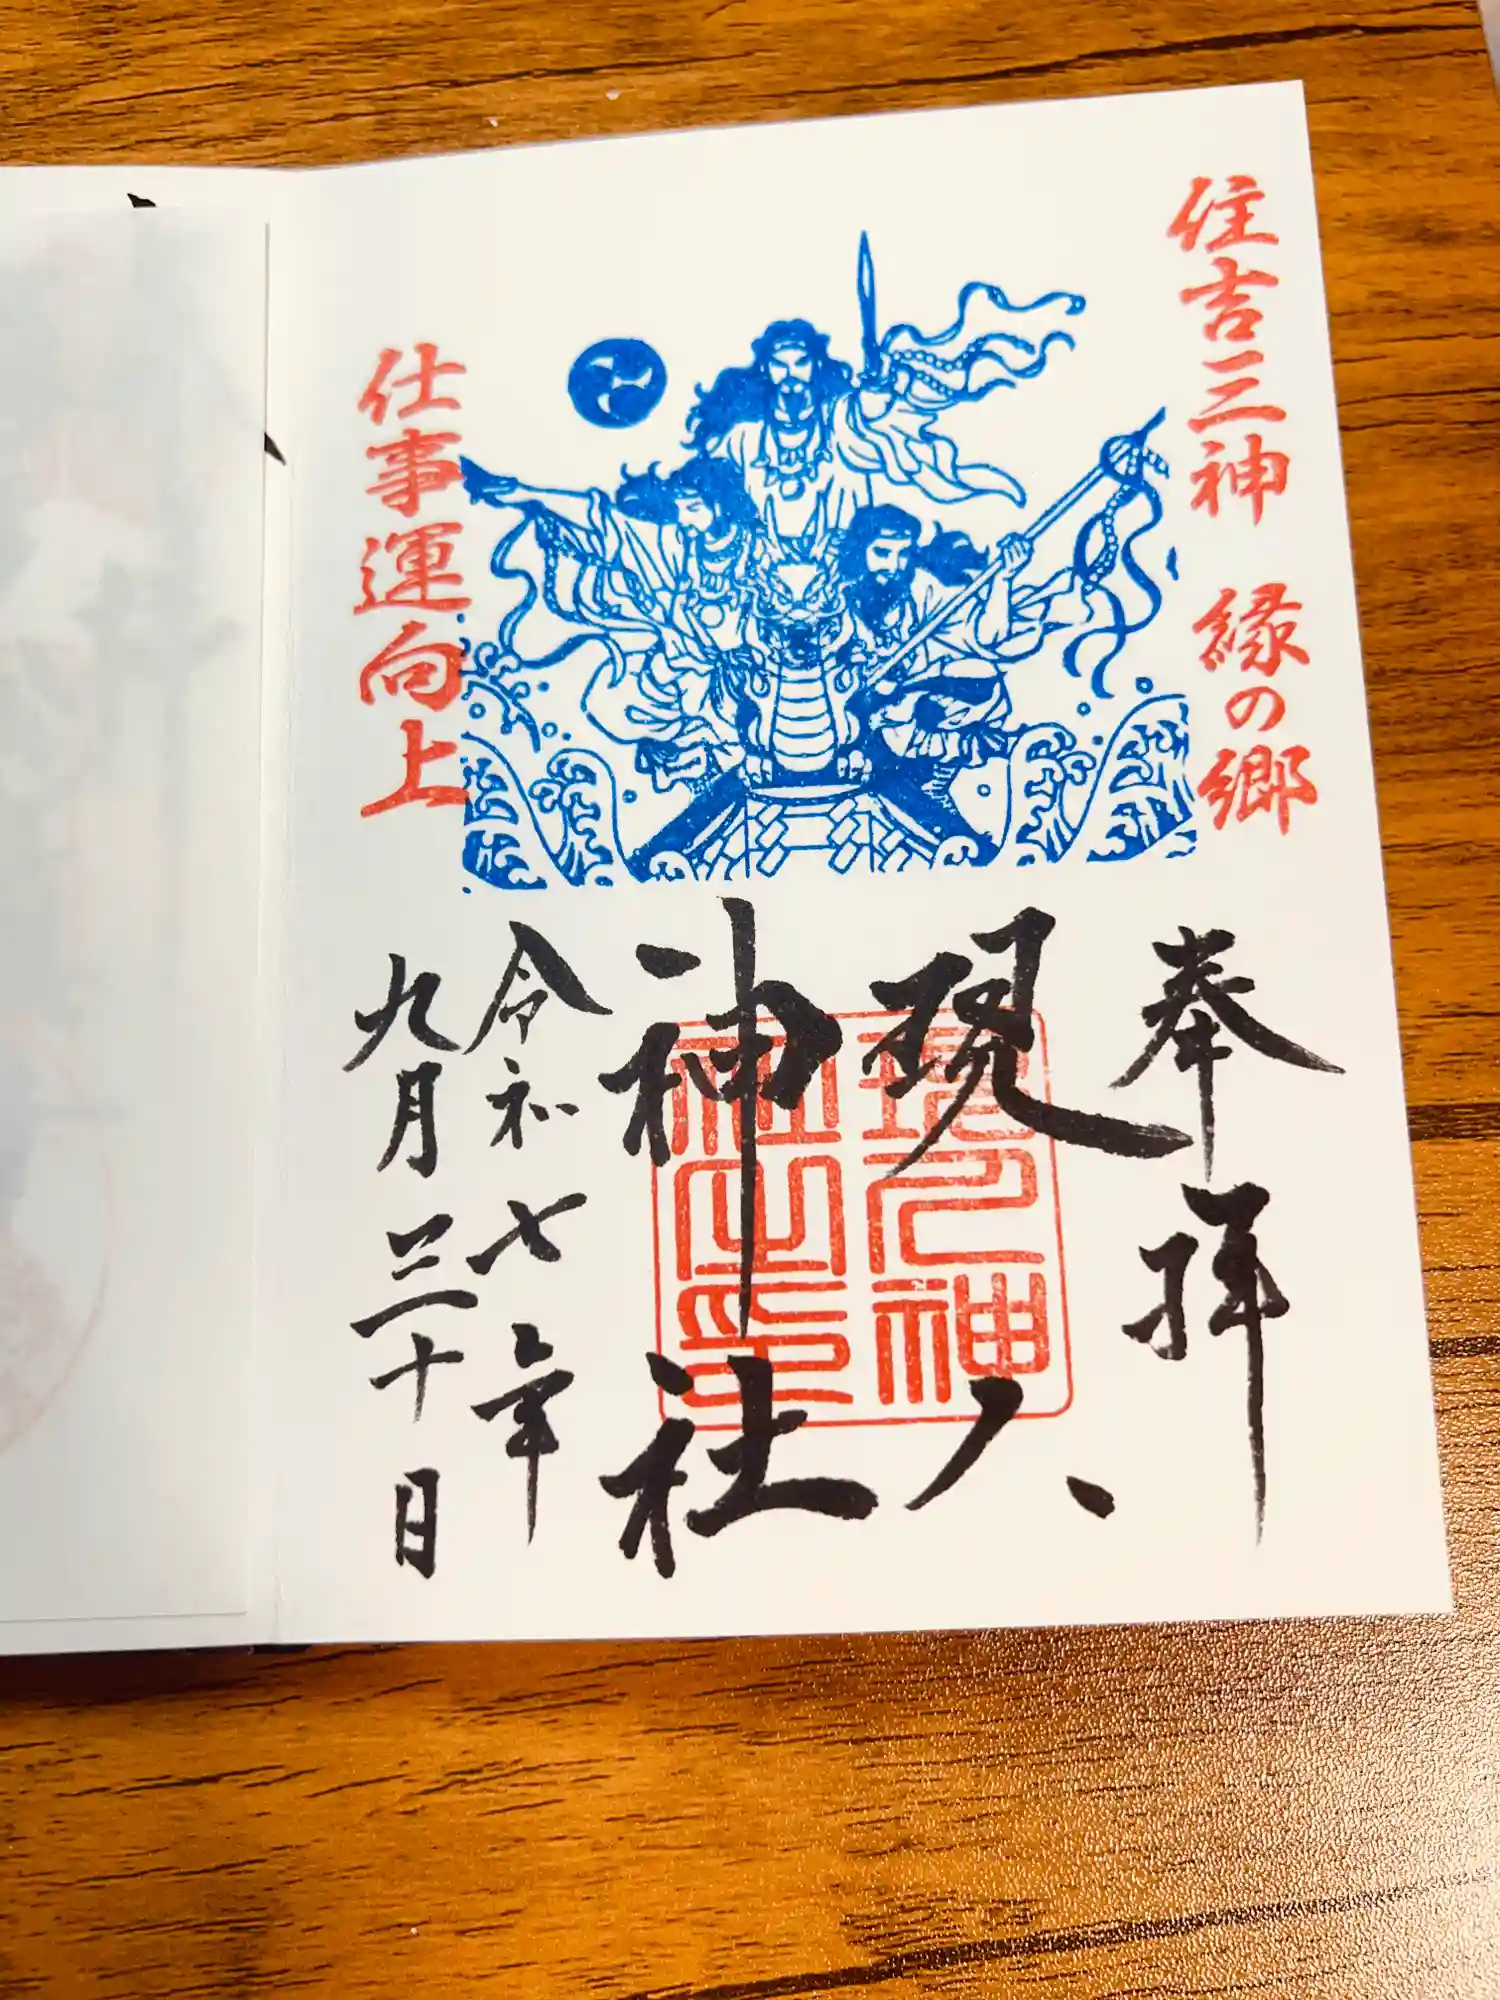 住吉三神 縁の郷
仕事運向上
奉拝
現人
神社
現人神
社之印
令和七年
九月三十日